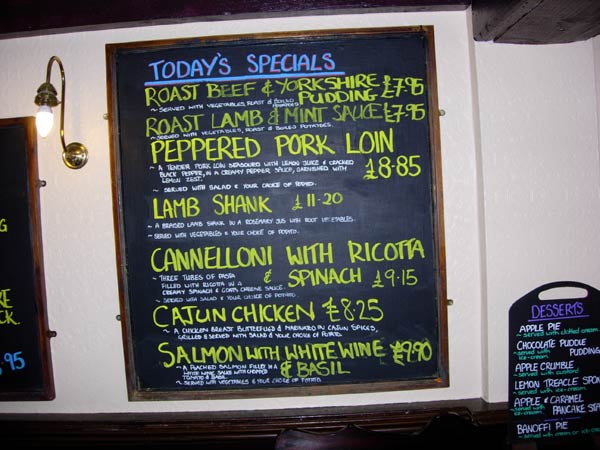 TODAY'S SPECIALS
ROAST BEEF & YORKSHIRE £7.95
PUDDING
~ SERVED WITH VEGETABLES, ROAST & BOILED
POTATOES
ROAST LAMB & MINT SAUCE £7.95
~ SERVED WITH VEGETABLES, ROAST & BOILED POTATOES.
PEPPERED PORK LOIN
£8.85
~ A TENDER PORK LOIN SEASONED WITH LEMON JUICE & CRACKED
BLACK PEPPER, IN A CREAMY PEPPER SAUCE, GARNISHED WITH
LEMON ZEST.
~ SERVED WITH SALAD & YOUR CHOICE OF POTATO.
LAMB SHANK £11.20
~ A BRAISED LAMB SHANK IN A ROSEMARY JUS WITH ROOT VEGETABLES.
~ SERVED WITH VEGETABLES & YOUR CHOICE OF POTATO.
CANNELLONI WITH RICOTTA
& SPINACH £9.15
~ THREE TUBES OF PASTA
FILLED WITH RICOTTA IN A
CREAMY SPINACH & GOATS CHEESE SAUCE.
~ SERVED WITH SALAD & YOUR CHOICE OF POTATO.
CAJUN CHICKEN £8.25
~ A CHICKEN BREAST BUTTERFLIED & MARINATED IN CAJUN SPICES,
GRILLED & SERVED WITH SALAD & YOUR CHOICE OF POTATO.
SALMON WITH WHITE WINE £9.90
& BASIL
~ A POACHED SALMON FILLET IN A
WHITE WINE SAUCE WITH CHOPPED
TOMATO & BASIL
~ SERVED WITH VEGETABLES & YOUR CHOICE OF POTATO.
G
RE
CK.
.95
DESSERTS
APPLE PIE
~ served with clotted cream
CHOCOLATE PUDDLE
PUDDING
~ served with
ice-cream
APPLE CRUMBLE
~ served with custard
LEMON TREACLE SPON
~ served with ice-cream
APPLE & CARAMEL
PANCAKE STA
~ served with
ice-cream
BANOFFI PIE
~ served with cream or ice-cream